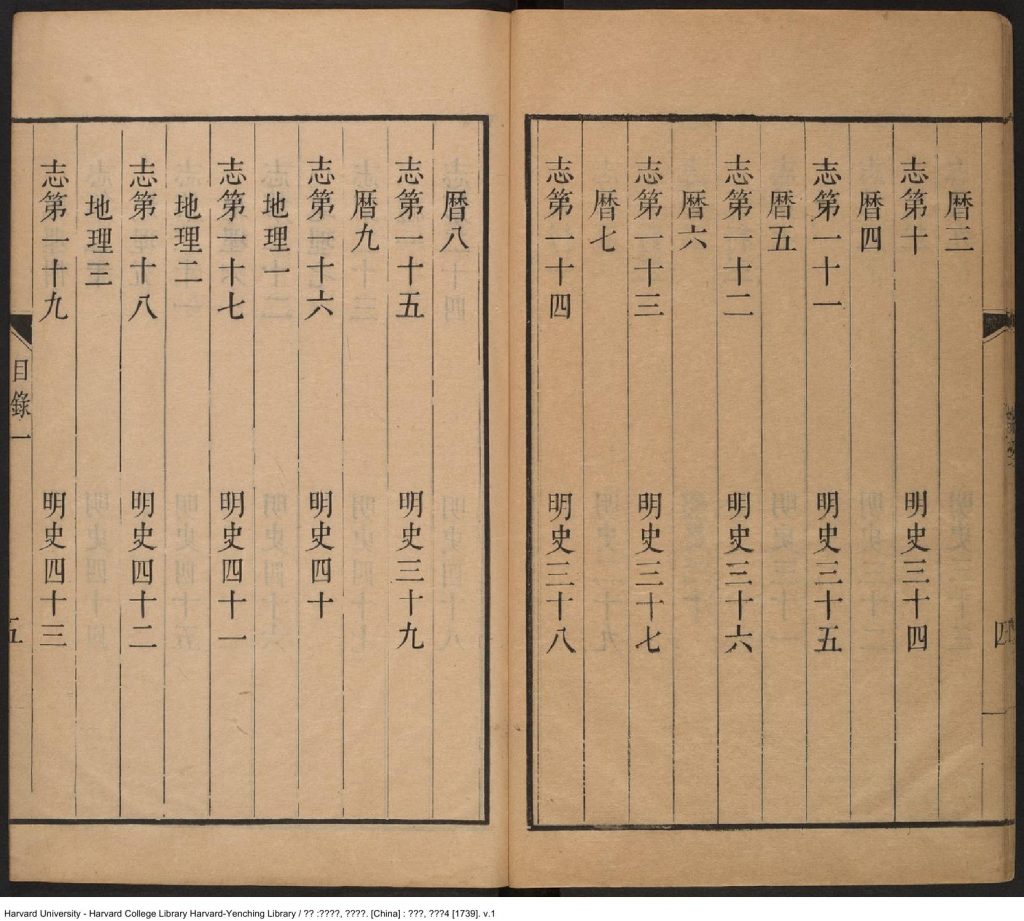 曆三
志第十 明史三十四
曆四
志第一十一 明史三十五
曆五
志第一十二 明史三十六
曆六
志第一十三 明史三十七
曆七
志第一十四 明史三十八
四
曆八
志第一十五 明史三十九
曆九
志第一十六 明史四十
地理一
志第一十七 明史四十一
地理二
志第一十八 明史四十二
地理三
志第一十九 明史四十三
目錄一
五
Harvard University - Harvard College Library Harvard-Yenching Library / ?? :????, ????. [China] : ???, ???4 [1739]. v.1